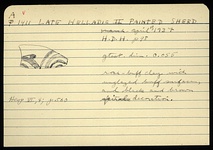 A
P 1411 LATE HELLADIC III PAINTED SHERD
April 1937
H.D.H. p.28
gtest. dim. 0.055
buff clay with
buff surface,
and black and brown
decoration.
Hesp II, 4, p.